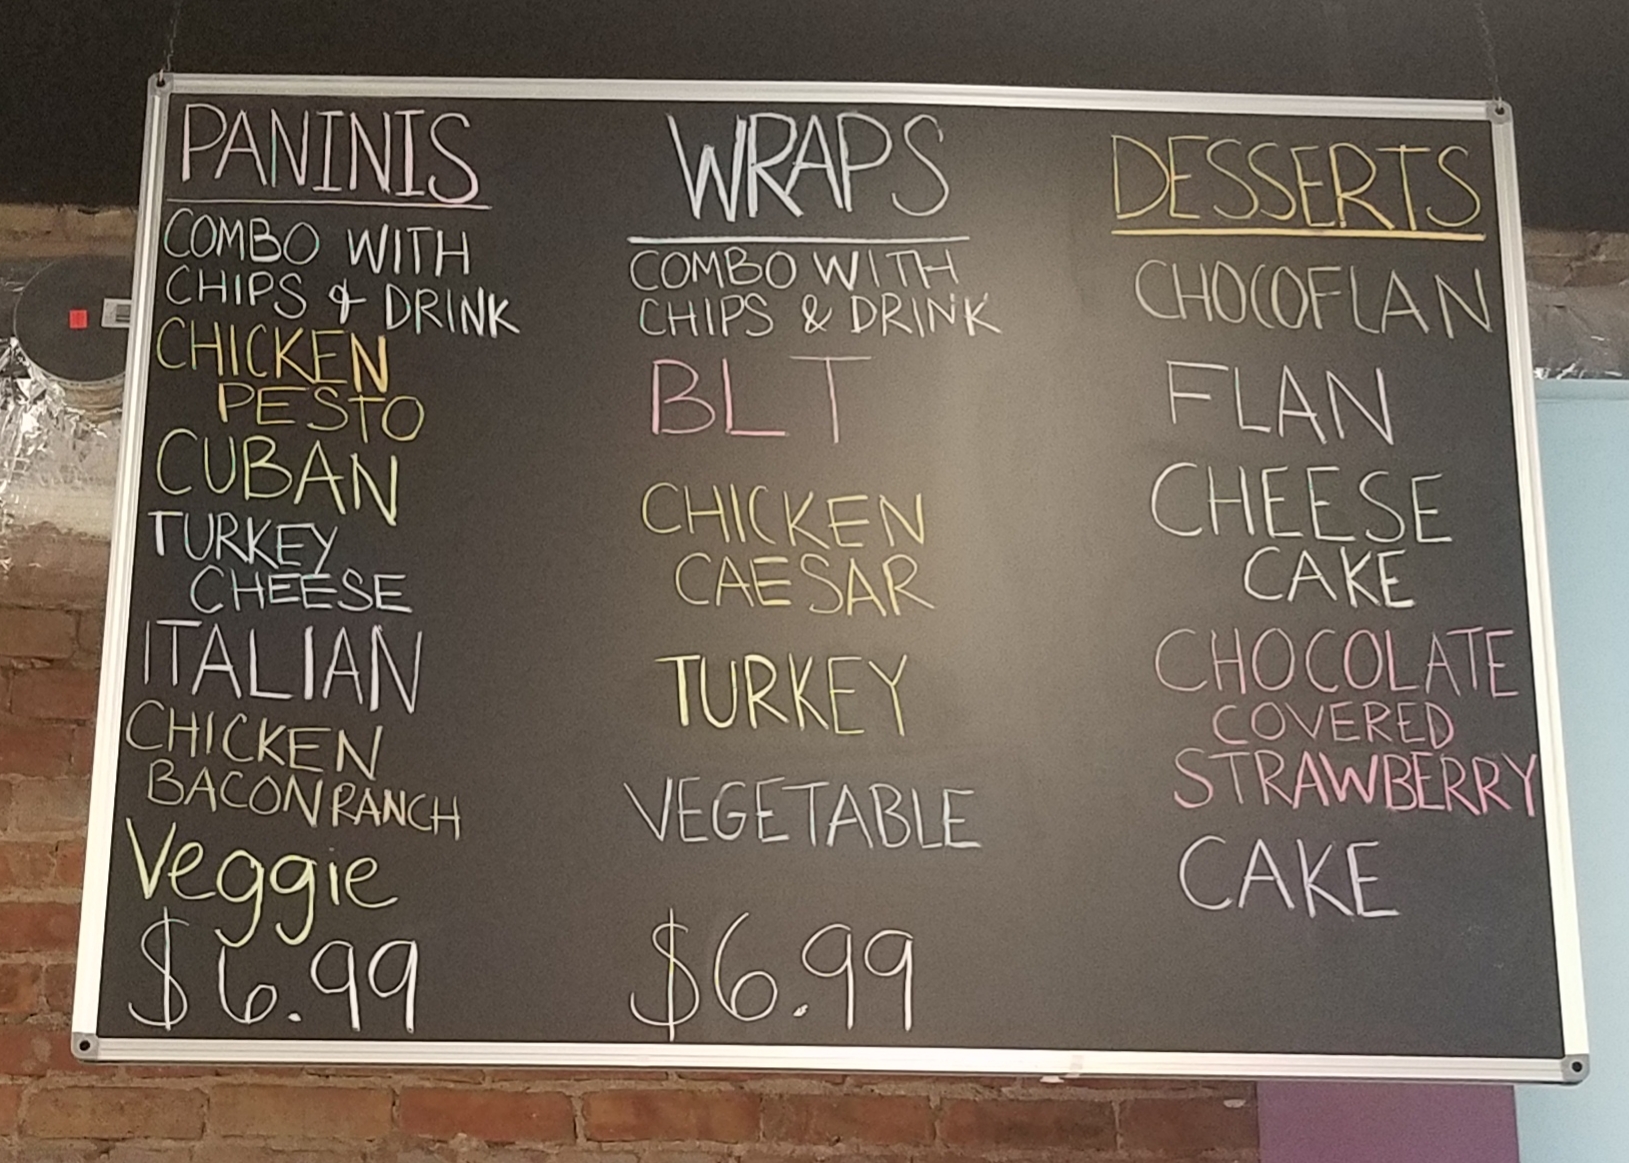 PANINIS
COMBO WITH
CHIPS & DRINK
CHICKEN
PESTO
CUBAN
TURKEY
CHEESE
ITALIAN
CHICKEN
BACON RANCH
Veggie
$6.99
WRAPS
COMBO WITH
CHIPS & DRINK
BLT
CHICKEN
CAESAR
TURKEY
VEGETABLE
$6.99
DESSERTS
CHOCOFLAN
FLAN
CHEESE
CAKE
CHOCOLATE
COVERED
STRAWBERRY
CAKE